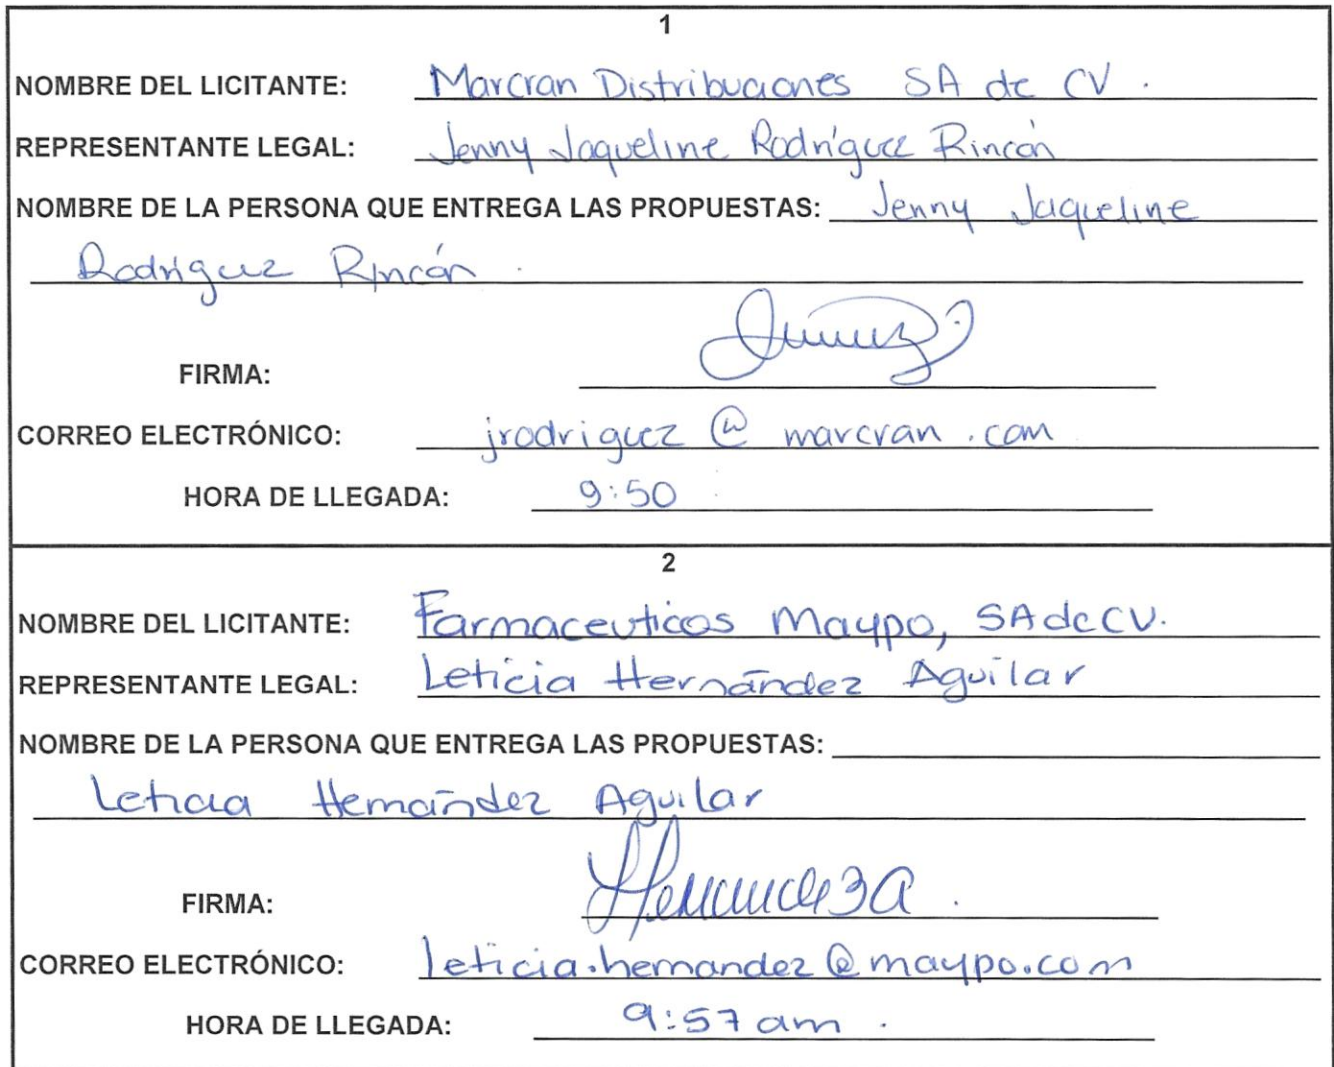 1
NOMBRE DEL LICITANTE: Marcran Distribuciones SA de CV.
REPRESENTANTE LEGAL: Jenny Jaqueline Rodríguez Rincón
NOMBRE DE LA PERSONA QUE ENTREGA LAS PROPUESTAS: Jenny Jaqueline
Rodríguez Rincón.
FIRMA:
CORREO ELECTRÓNICO: jrodriguez@marcran.com
HORA DE LLEGADA: 9:50
2
NOMBRE DEL LICITANTE: Farmaceuticos Maypo, SA de CV.
REPRESENTANTE LEGAL: Leticia Hernández Aguilar
NOMBRE DE LA PERSONA QUE ENTREGA LAS PROPUESTAS:
Leticia Hernández Aguilar
FIRMA:
CORREO ELECTRÓNICO: leticia.hernandez@maypo.com
HORA DE LLEGADA: 9:57 am.